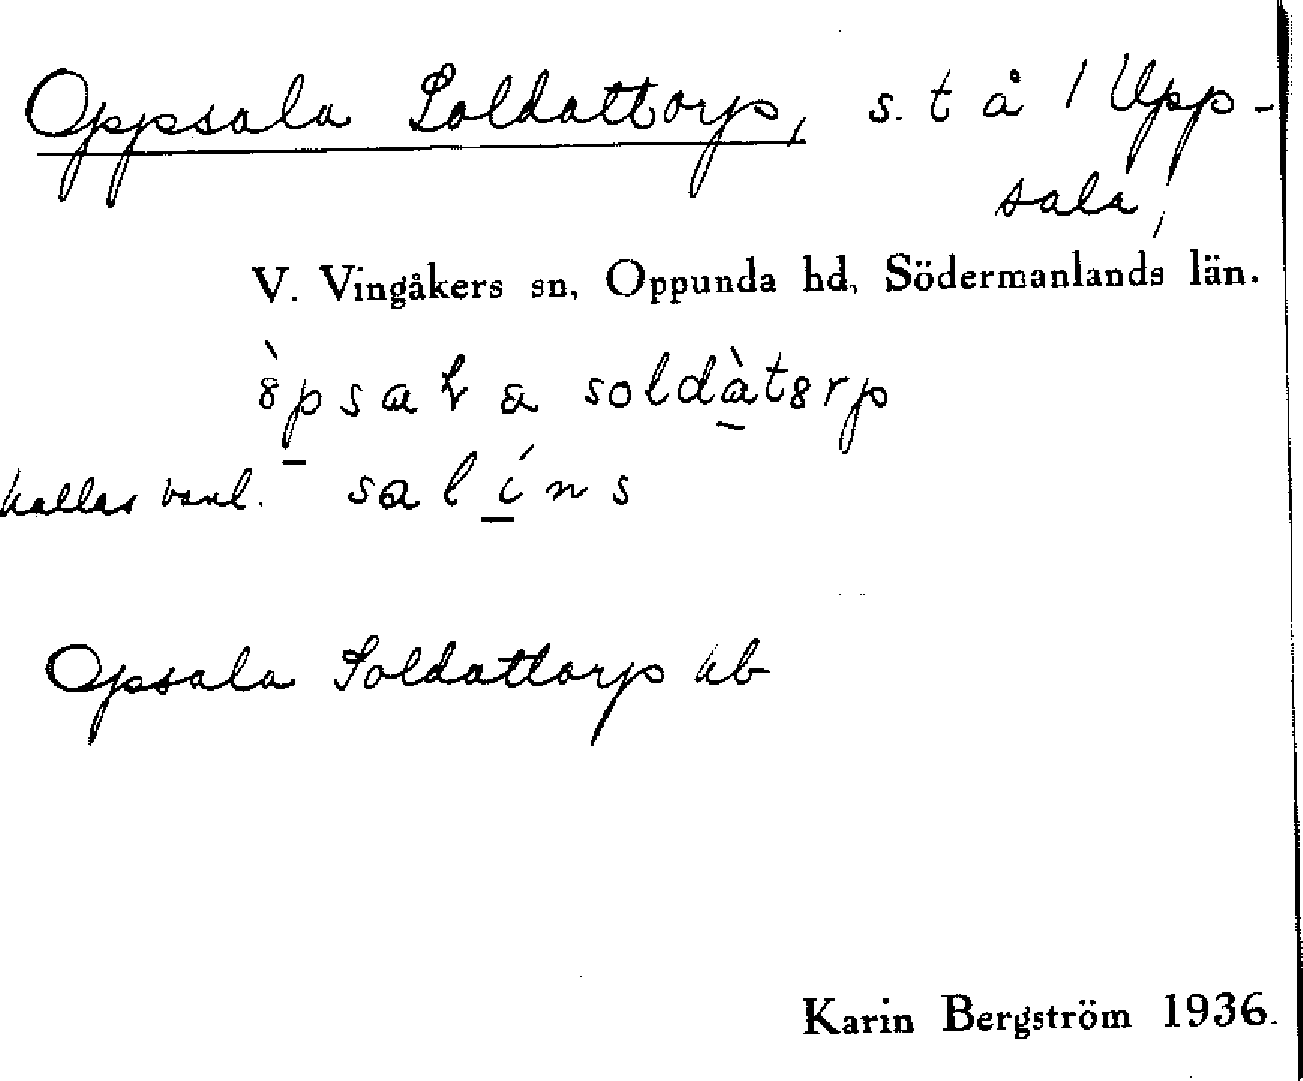 Oppsala Soldattorp, s. t å / Upp-
sala /
V. Vingåkers sn, Oppunda hd, Södermanlands län.
kallas vanl. salíns
Opsala Soldattorp kb
Karin Bergström 1936.